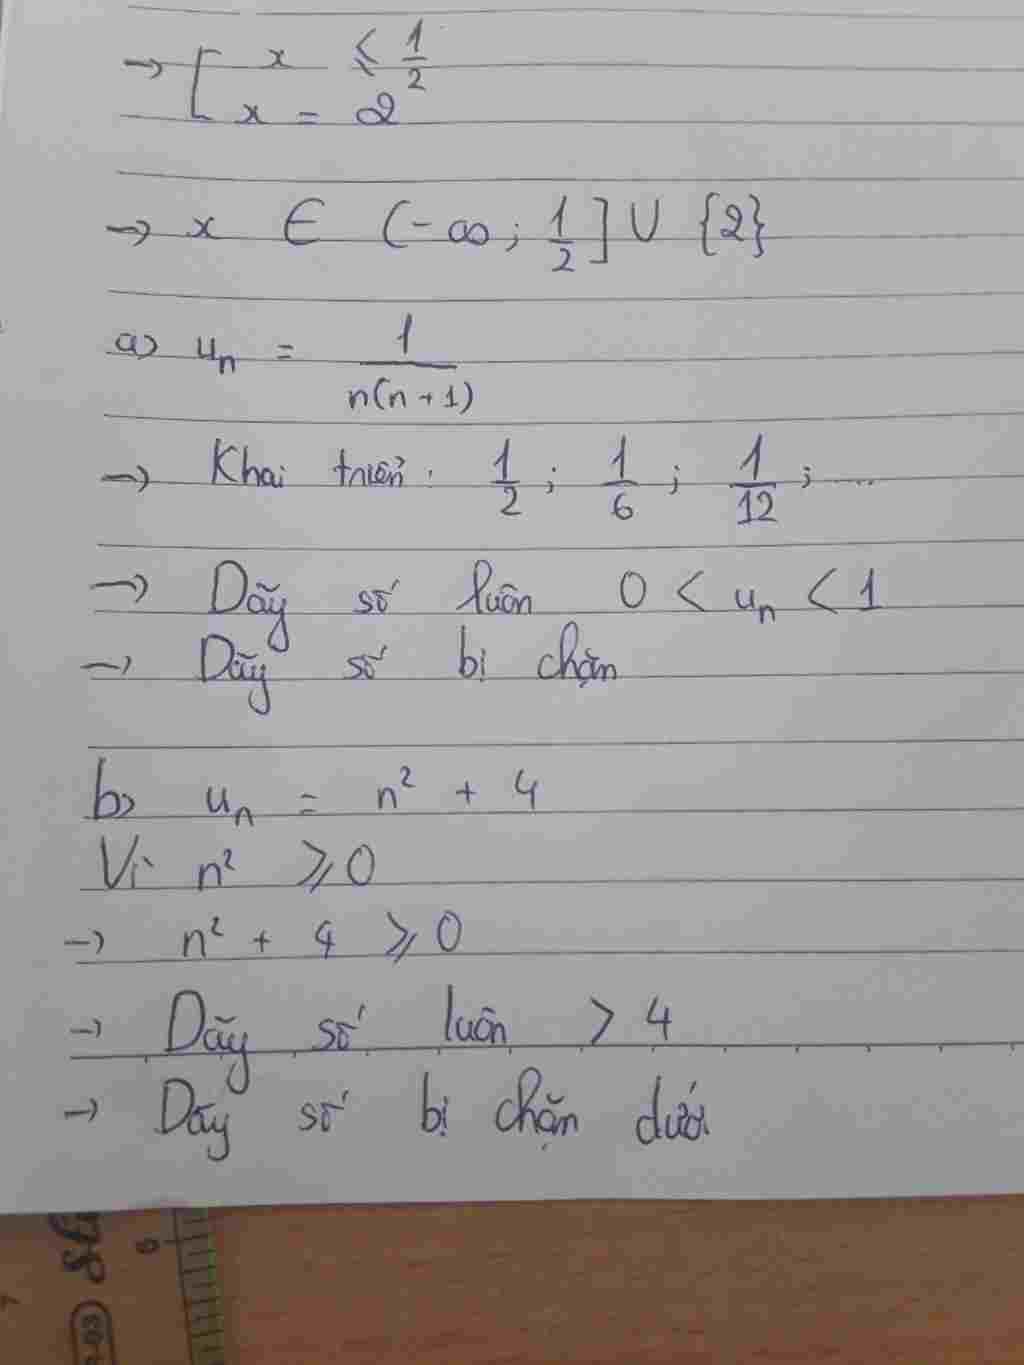 → [ x ≤ 1/2
x = 2
→ x ∈ (-∞; 1/2] ∪ {2}
a) uₙ = 1/n(n+1)
→ Khai triển: 1/2; 1/6; 1/12; ....
→ Dãy số luôn 0 < uₙ < 1
→ Dãy số bị chặn
b) uₙ = n² + 4
Vì n² ≥ 0
→ n² + 4 ≥ 0
→ Dãy số luôn > 4
→ Dãy số bị chặn dưới
6